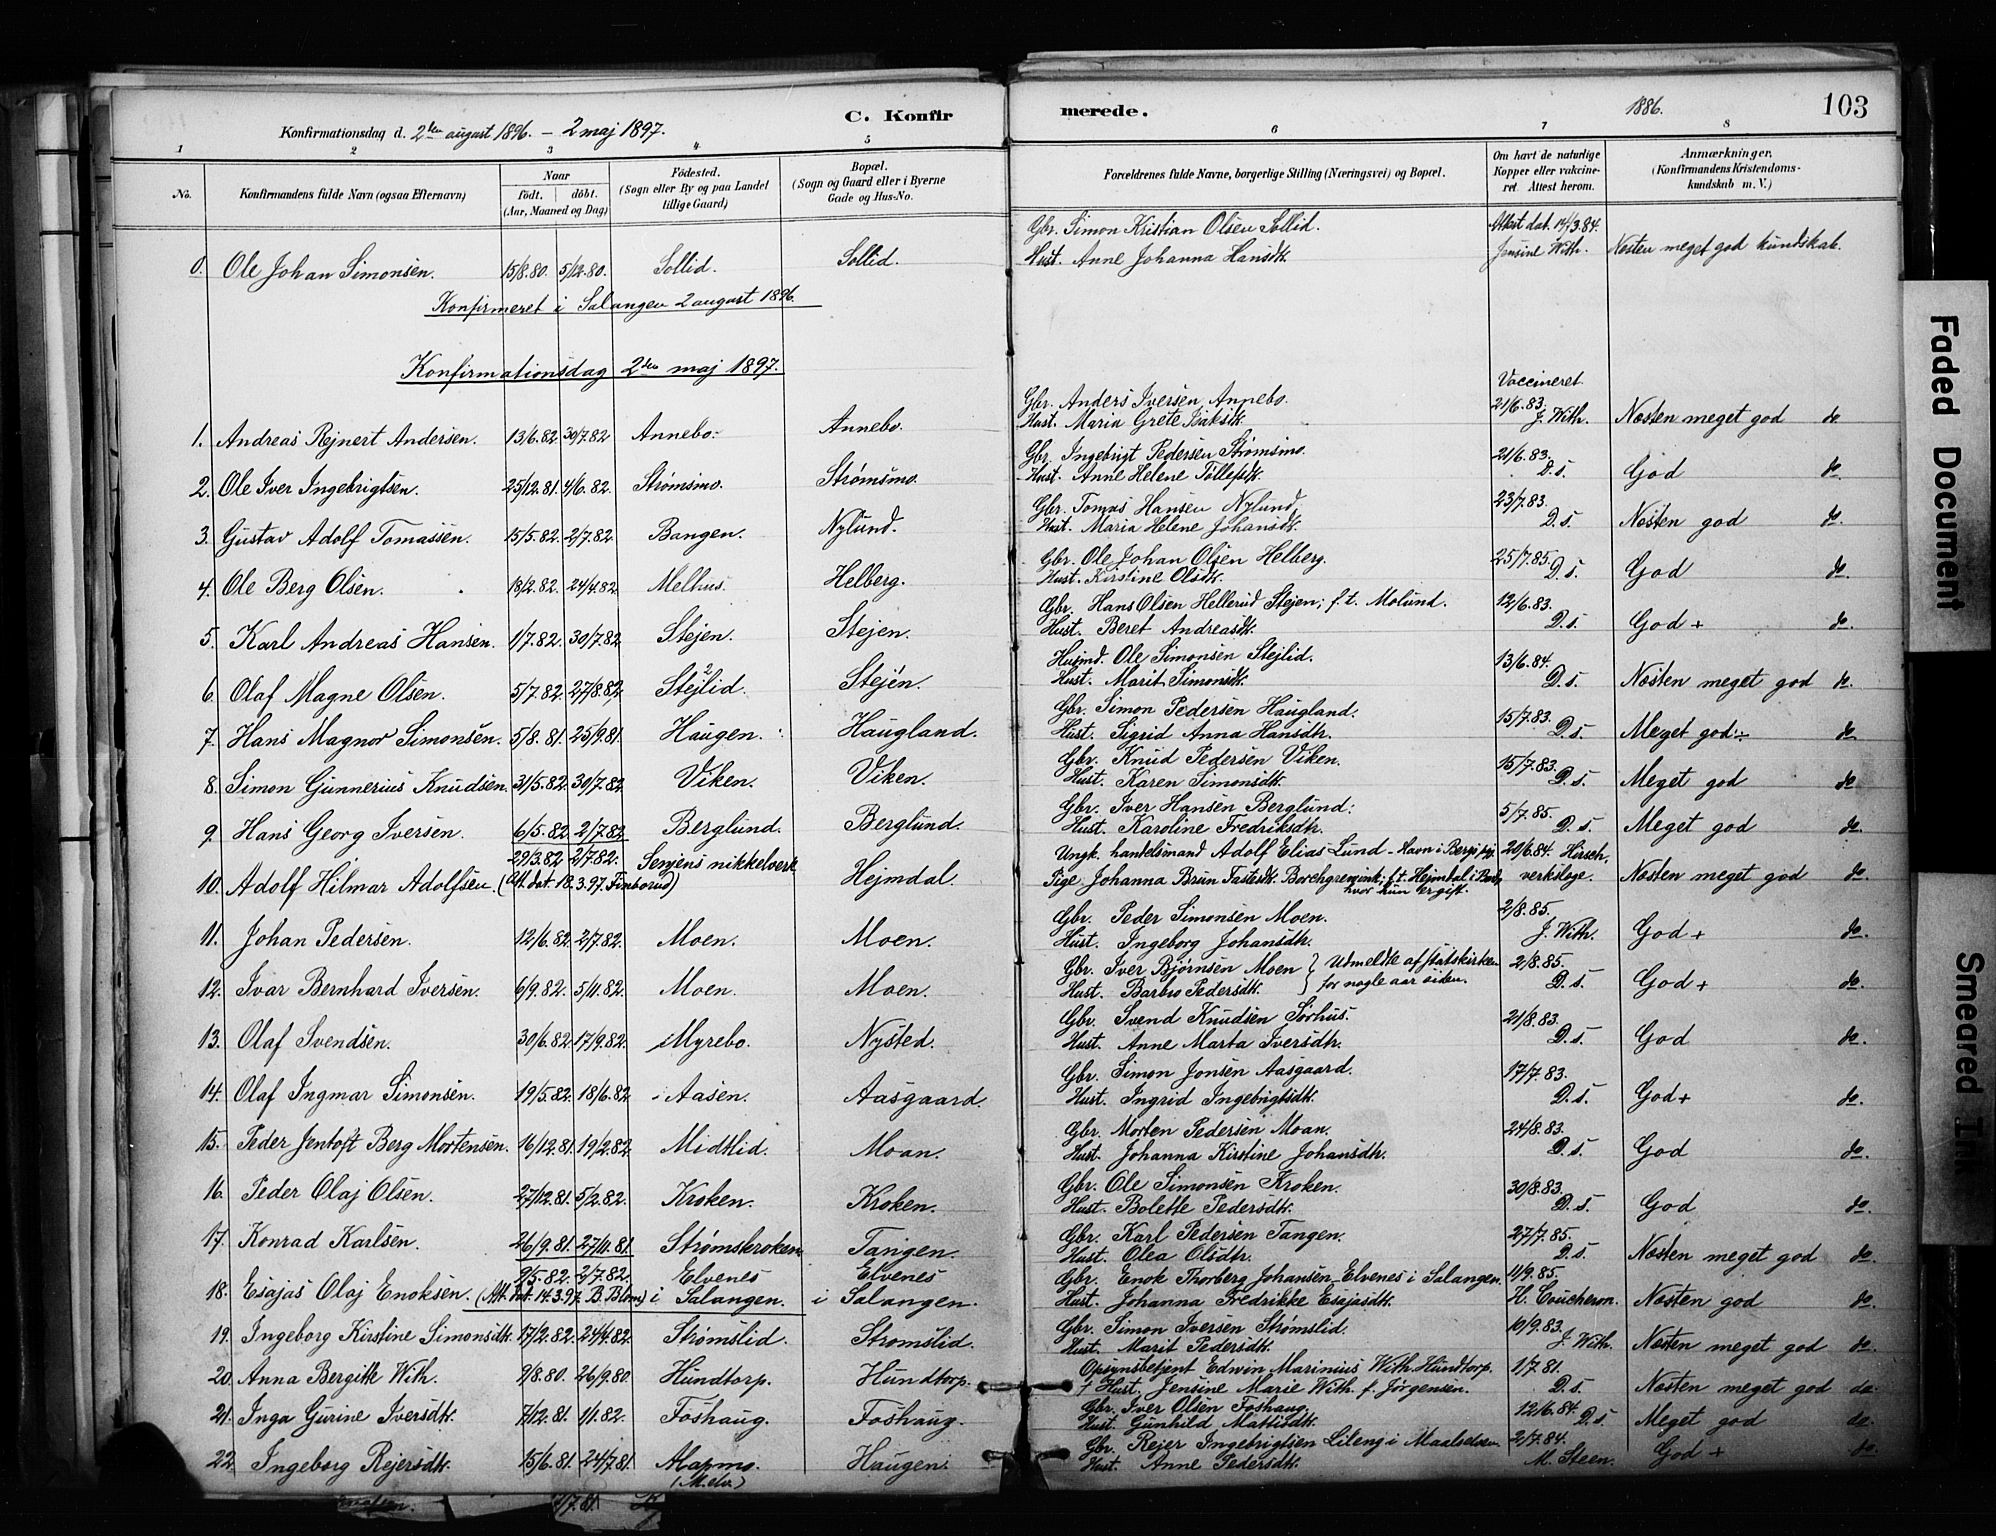 C. Konfirmerede. 1886. 103
Konfirmationsdag d. 2den august 1896. – 2 maj 1897.
1 2 3 4 5 6 7 8
No. Konfirmandens fulde Navn (ogsaa Efternavn) Naar født. døbt. (Aar, Maaned og Dag) Fødested. (Sogn eller By og paa Landet tillige Gaard) Bopæl. (Sogn og Gaard eller i Byerne Gade og Hus-No. Forældrenes fulde Navne, borgerlige Stilling (Næringsvei) og Bopæl. Om havt de naturlige Kopper eller vakcineret. Attest herom. Anmærkninger. (Konfirmandens Kristendomskundskab m. V.)
0. Ole Johan Simonsen. 15/8.80. 5/12.80. Sollid. Sollid. Gbr. Simon Kristian Olsen Sollid. Attest dat. 14/3.84.
Hust. Anne Johanna Hansdtr. Jensine With. Næsten meget god kundskab.
Konfirmeret i Salangen 2 august 1896.
Konfirmationsdag 2den maj 1897.
Vaccineret
1. Andreas Rejnert Andersen. 13/6.82. 30/7.82 Annebo. Annebo. Gbr. Anders Iversen Annebo. 21/6.83.
Hust. Maria Grete Isaksdtr. J. With. Næsten meget god do.
2. Ole Iver Ingebrigtsen. 25/12.81. 4/6.82. Strømsmo. Strømsmo. Gbr. Ingebrigt Pedersen Strømsmo. 21/6.83.
Hust. Anne Helene Tollefsdtr. D.s. God do
3. Gustav Adolf Tomassen. 15/5.82. 2/7.82. Bangen. Nylund. Gbr. Tomas Hansen Nylund, 23/7.83.
Hust. Maria Helene Johansdtr. D.s. Næsten god do.
4. Ole Berg Olsen. 18/2.82. 24/4.82. Melhus. Helberg. Gbr. Ole Johan Olsen Helberg. 25/7.85.
Hust. Kirstine Olsdtr. D.s. God do.
5. Karl Andreas Hansen. 1/7.82. 30/7.82. Stejen. Stejen. Gbr. Hans Olsen Hellerud Stejen; f.t. Molund. 12/6.83.
Hust. Beret Andreasdtr. D.s. God + do.
6. Olaf Magne Olsen. 5/7.82. 27/8.82. Stejlid. Stejen. Husmd. Ole Simonsen Stejlid. 13/6.84.
Hust. Marit Simonsdtr. D.s. Næsten meget god do.
7. Hans Magnor Simonsen. 5/8.81. 25/9.81. Haugen. Haugland. Gbr. Simon Pedersen Haugland. 15/7.83.
Hust. Sigrid Anna Hansdtr. D.s. Meget god ÷ do
8. Simon Gunnerius Knudsen. 31/5.82. 30/7.82. Viken. Viken. Gbr. Knud Pedersen Viken. 15/7.83.
Hust. Karen Simonsdtr. D.s. Meget god do
9. Hans Georg Iversen. 6/5.82. 2/7.82. Berglund. Berglund. Gbr. Iver Hansen Berglund. 5/7.85.
Hust. Karoline Fredriksdtr. D.s. Meget god do.
29/3.82. 2/7.82. Senjens nikkelverk Ungk. handelsmand Adolf Elias Lund – Havn i Bergs 20/6.84. Hirsch,
10. Adolf Hilmar Adolfsen (Att. dat. 18.3.97. Finborud) Hejmdal. Pige Johanna Brun Fastesdtr. Borchgrevink; f.t. Hejmdal i verkslæge. Næsten meget god do.
hvor hun er gift.
11. Johan Pedersen. 12/6.82. 2/7.82. Moen. Moen. Gbr. Peder Simonsen Moen. 2/8.85.
Hust. Ingeborg Johansdtr. J. With. God + do.
12. Ivar Bernhard Iversen. 6/9.82. 5/11.82. Moen. Moen. Gbr. Iver Bjørnsen Moen } Udmeldte af statskirken 2/8.85.
Hust. Barbro Pedersdtr. for nogle aar siden. D.s. God + do.
13. Olaf Svendsen. 30/6.82. 17/9.82. Myrebo. Nysted. Gbr. Svend Knudsen Sørhus. 21/8.83.
Hust. Anne Marta Iversdtr. D.s. God do.
14. Olaf Ingmar Simonsen. 19/5.82. 18/6.82. Aasen. Aasgaard. Gbr. Simon Jonsen Aasgaard. 17/7.83.
Hust. Ingrid Ingebrigtsdtr. D.s. God + do.
15. Peder Jentoft Berg Mortensen. 16/12.81. 19/2.82. Midtlid. Moan. Gbr. Morten Pedersen Moan. 24/8.83.
Hust. Johanna Kirstine Johansdtr. D.s. God do.
16. Peder Olaj Olsen. 27/12.81. 5/2.82. Kroken. Kroken. Gbr. Ole Simonsen Kroken. 30/8.83.
Hust. Bolette Pedersdtr. D.s. God do
17. Konrad Karlsen. 26/9.81. 27/11.81. Strømskroken Tangen. Gbr. Karl Pedersen Tangen. 27/7.85.
Hust. Olea Olsdtr. D.s. Næsten meget god do
9/5.82. 2/7.82. Elvenes Elvenes Gbr. Enok Thorberg Johansen Elvenes i Salangen. 11/9.85.
18. Esajas Olaj Enoksen. (Att. dat. 14.3.97. B. Blom) i Salangen. i Salangen. Hust. Johanna Fredrikke Esajasdtr. H. Coucheron. Næsten god do.
19. Ingeborg Kirstine Simonsdtr. 17/2.82. 24/4.82. Strømslid. Strømslid. Gbr. Simon Iversen Strømslid. 10/9.83.
Hust. Marit Pedersdtr. J. With. Næsten meget god do
20. Anna Bergitte With. 9/8.80. 26/9.80 Hundtorp. Hundtorp. Opsynsbetjent Edwin Marinius With. Hundtorp. 1/7.81.
† Hust. Jensine Marie With f. Jørgensen. D.s. Næsten meget god do.
21. Inga Gurine Iversdtr. 7/12.81. 1/1.82. Foshaug. Foshaug. Gbr. Iver Olsen Foshaug. 12/6.84.
Hust. Gunhild Mattisdtr. D.s. Meget god do.
22. Ingeborg Rejersdtr. 15/6.81. 24/7.81. Mapmo. Haugen. Gbr. Rejer Ingebrigtsen Lileng i Maalselven 2/7.84.
(M.elv.) Hust. Anne Pedersdtr. M. Steen. God + do.
Faded Document
Smeared Ink